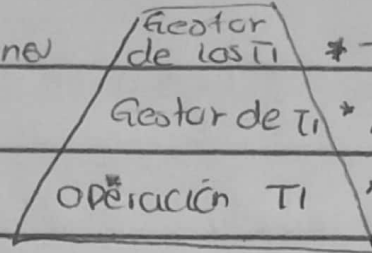 Gestor
ne de los TI * -
Gestor de TI *
Operación TI